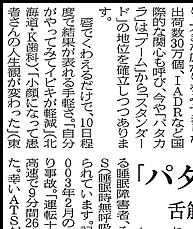 出荷数30万個、IADRなど国
際的な関心も呼び、今や「パタカ
ラ」は「ブーム」から「スタンダー
ド」の地位を確立しつつありま
す。
唇でくわえるだけで、10日程
度で結果が表れる手軽さ。「自分
がやってみてイビキが軽減」（北
海道・K歯科）、「小顔になって患
者さんの人生観が変わった」（東
「パタ
舌
る睡眠障害者、そ
S（睡眠時無呼吸
られています。
003年2月の
り事故。運転士
高速で8分間26
た。幸いATS